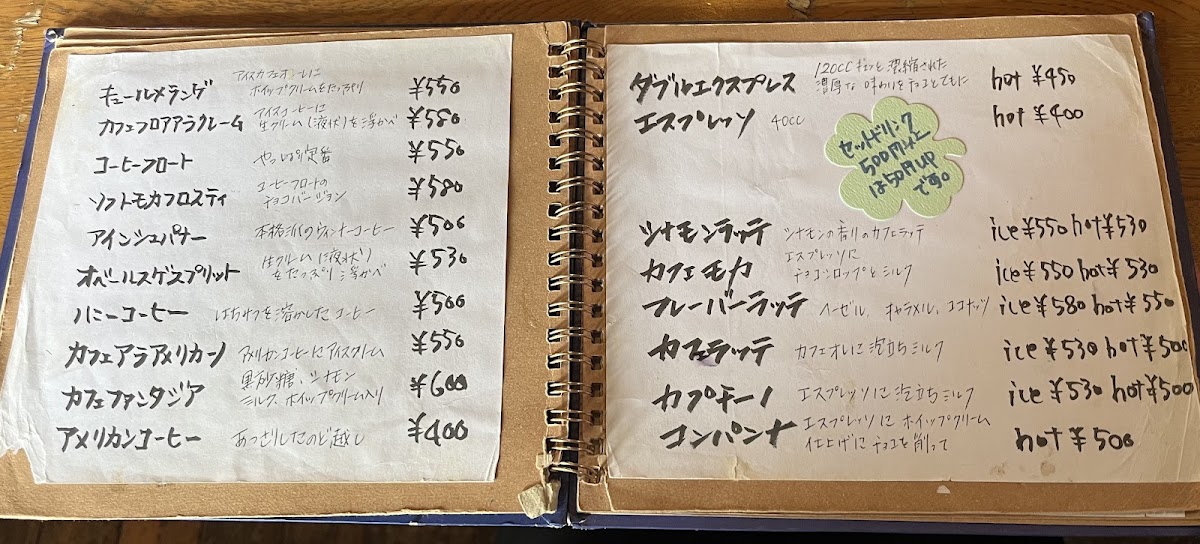 キュールメランゲ アイスカフェオーレに
ホイップクリームをたっぷり ¥550
カフェフロアアラクレーム アイスコーヒーに
生クリーム(液状)を浮かべ ¥580
コーヒーフロート やっぱり定番 ¥550
ソフトモカフロスティ コーヒーフロートの
チョコバージョン ¥580
アインシュパナー 本格派のウィンナーコーヒー ¥500
オベールスゲスプリット 生クリーム(液状)
をたっぷり浮かべ ¥530
ハニーコーヒー はちみつを溶かしたコーヒー ¥500
カフェアラアメリカーノ アメリカンコーヒーにアイスクリーム ¥550
カフェファンタジア 黒砂糖、シナモン
ミルク、ホイップクリーム入り ¥600
アメリカンコーヒー あっさりしたのど越し ¥400
ダブルエクスプレス 120CC ギュッと凝縮された
濃厚な味わりをチョコとともに hot ¥450
エスプレッソ 40cc hot ¥400
セットドリンク
500円以上
は50円UP
です。
シナモンラッテ シナモンの香りのカフェラッテ ice ¥550 hot ¥530
カフェモカ エスプレッソに
チョコシロップとミルク ice ¥550 hot ¥530
フレーバーラッテ ヘーゼル、キャラメル、ココナッツ ice ¥580 hot ¥550
カフェラッテ カフェオレに泡立ちミルク ice ¥530 hot ¥500
カプチーノ エスプレッソに泡立ちミルク ice ¥530 hot ¥500
コンパンナ エスプレッソにホイップクリーム
仕上げにチョコを削って hot ¥500